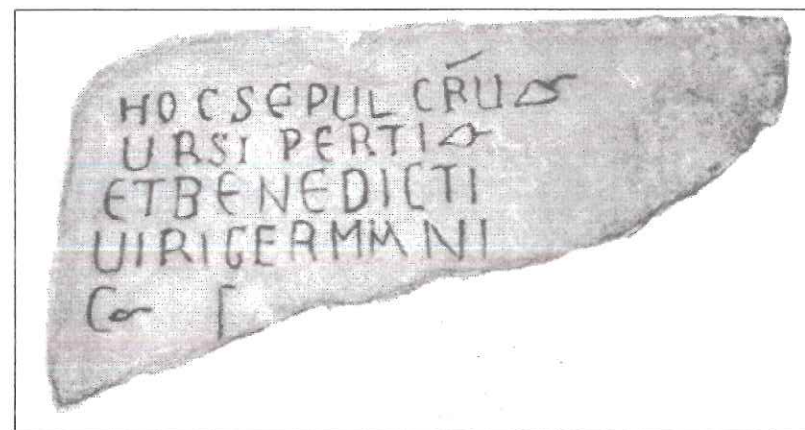 HOC SEPULCRU
URSI PERTI
ET BENEDICTI
UIRI GERMMANI